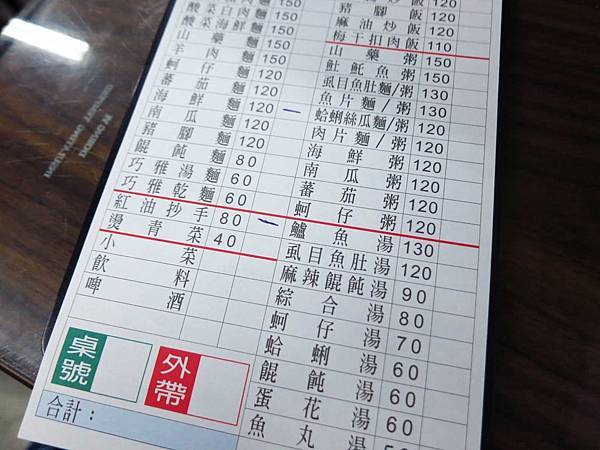 酸菜白肉麵 150
酸菜海鮮麵 150
山藥麵 150
羊肉麵 150
蚵仔麵 120
蕃茄麵 120
海鮮麵 120
南瓜麵 120
豬腳麵 120
餛飩麵 80
巧雅湯麵 60
巧雅乾麵 60
紅油抄手 80
燙青菜 40
小菜
飲料
啤酒
桌號
外帶
合計：
豬腳飯 120
麻油炒飯 120
梅干扣肉飯 110
山藥粥 150
魠魚粥 150
虱目魚肚麵/粥 130
魚片麵/粥 130
蛤蜊絲瓜麵/粥 120
肉片麵/粥 120
海鮮粥 120
南瓜粥 120
蕃茄粥 120
蚵仔粥 120
鱸魚湯 130
虱目魚肚湯 120
麻辣餛飩湯 90
綜合湯 80
蚵仔湯 70
蛤蜊湯 60
餛飩湯 60
蛋花湯 60
魚丸湯